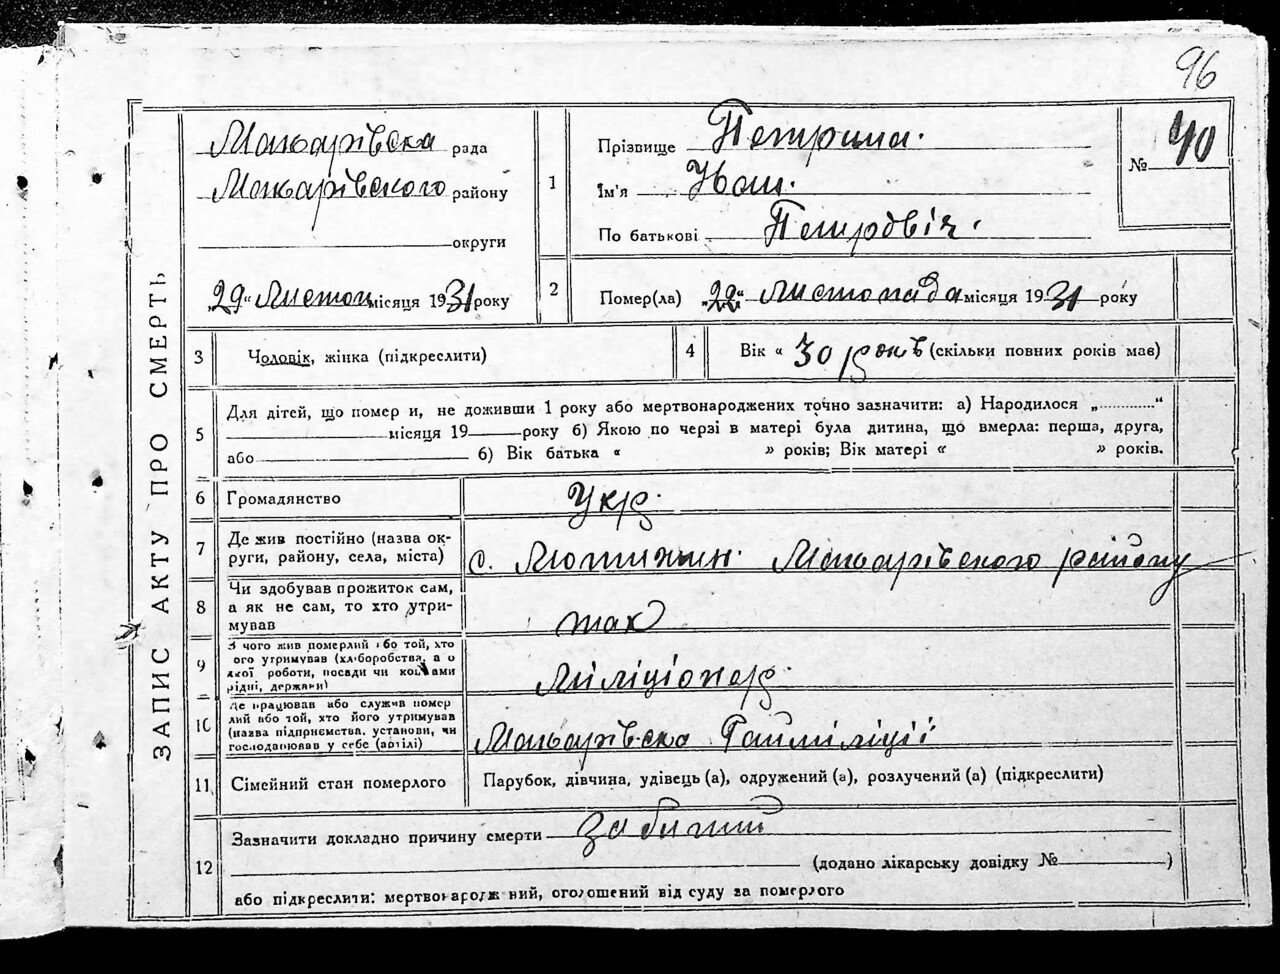 96
ЗАПИС АКТУ ПРО СМЕРТЬ
Макарівська рада
Макарівського району
округи
„29“ Листоп місяця 1931 року
1
Прізвище Петрина.
Ім'я Иван.
По батькові Петровіч.
№ 40
2
Помер(ла) „22“ Листопада місяця 1931 року
3 Чоловік, жінка (підкреслити)
4 Вік « 30 років (скільки повних років мав)
5 Для дітей, що помер и, не доживши 1 року або мертвонароджених точно зазначити: а) Народилося „..........“
місяця 19 року б) Якою по черзі в матері була дитина, що вмерла: перша, друга,
або б) Вік батька « » років; Вік матері « » років.
6 Громадянство Укр.
7 Де жив постійно (назва ок-
руги, району, села, міста) с. Мотижин. Макарівського району
8 Чи здобував прожиток сам,
а як не сам, то хто утри-
мував так
9 З чого жив померлий або той, хто
ого утримував (хліборобства, а о
якої роботи, посади чи коштами
рідні, держави) Міліціонер.
10 Де працював або служив помер
лий або той, хто його утримував
(назва підприємства, установи, чи
господарював у себе (артілі) Макарівська Райміліції
11 Сімейний стан померлого Парубок, дівчина, удівець (а), одружений (а), розлучений (а) (підкреслити)
12 Зазначити докладно причину смерти забитий
(додано лікарську довідку № )
або підкреслити: мертвонародж ний, оголошений від суду за померлого